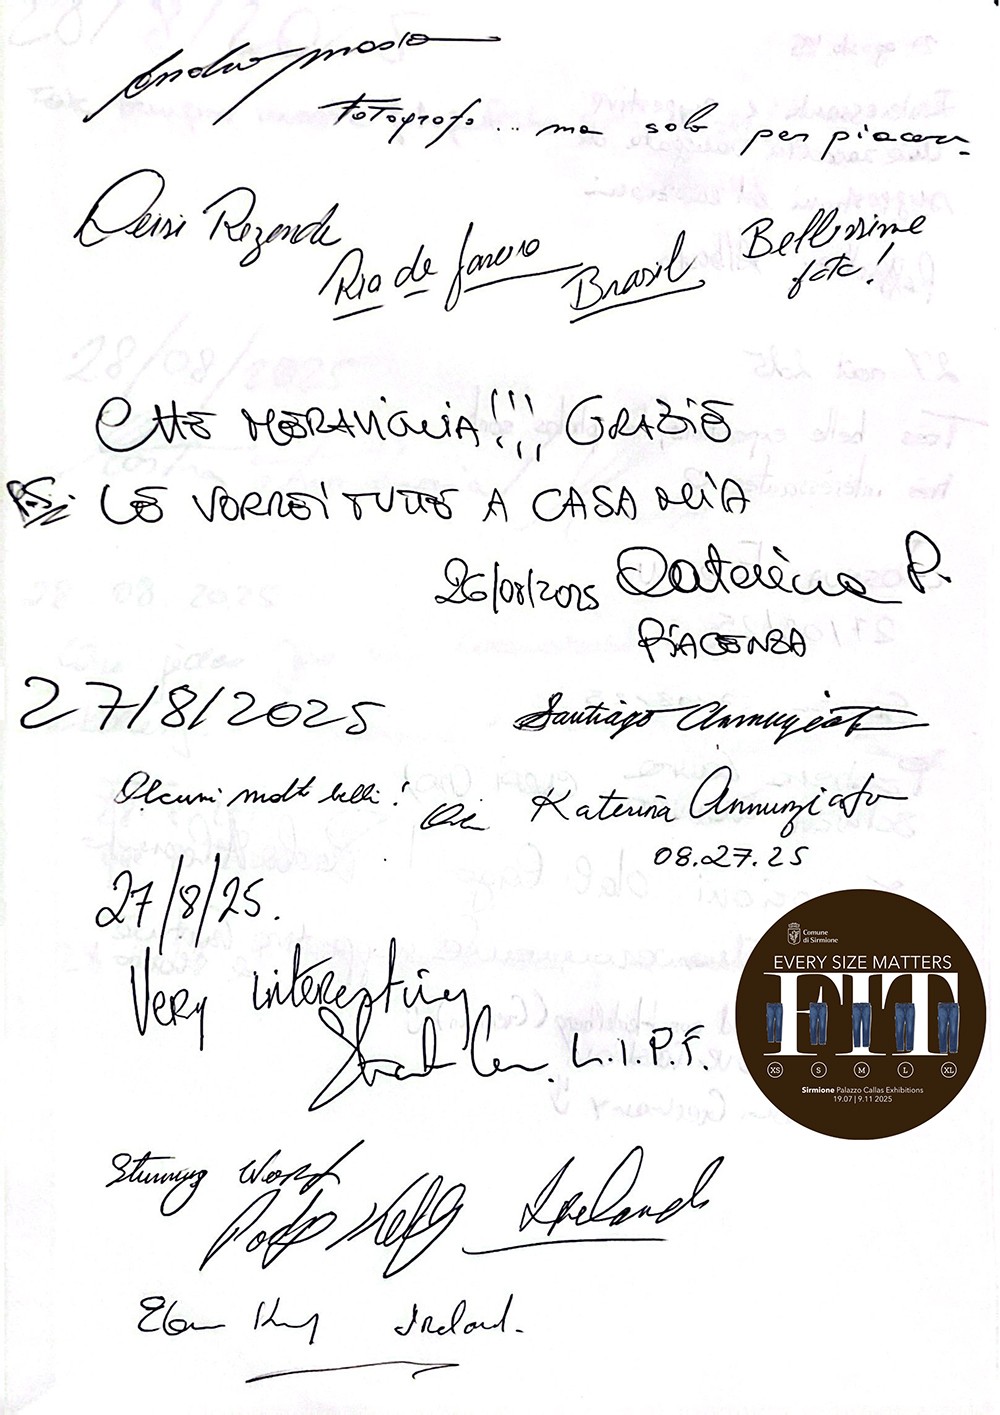 Fotografo... ma solo per piacere.
Deisi Rezende
Rio de Janeiro
Brasil,
Bellissime
foto!
CHE MERAVIGLIA!!! GRAZIE
P.S. LE VORREI TUTTE A CASA MIA
26/08/2025 Caterina P.
PIACENZA
27/8/2025
Santiago Annunziato
Alcuni molto belli!
Katerina Annunziato
08.27.25
27/8/25.
Very interesting
L.I.P.F.
Comune
di Sirmione
EVERY SIZE MATTERS
FIT
XS S M L XL
Sirmione Palazzo Callas Exhibitions
19.07 | 9.11 2025
Stunning Work
Ireland
Ireland.